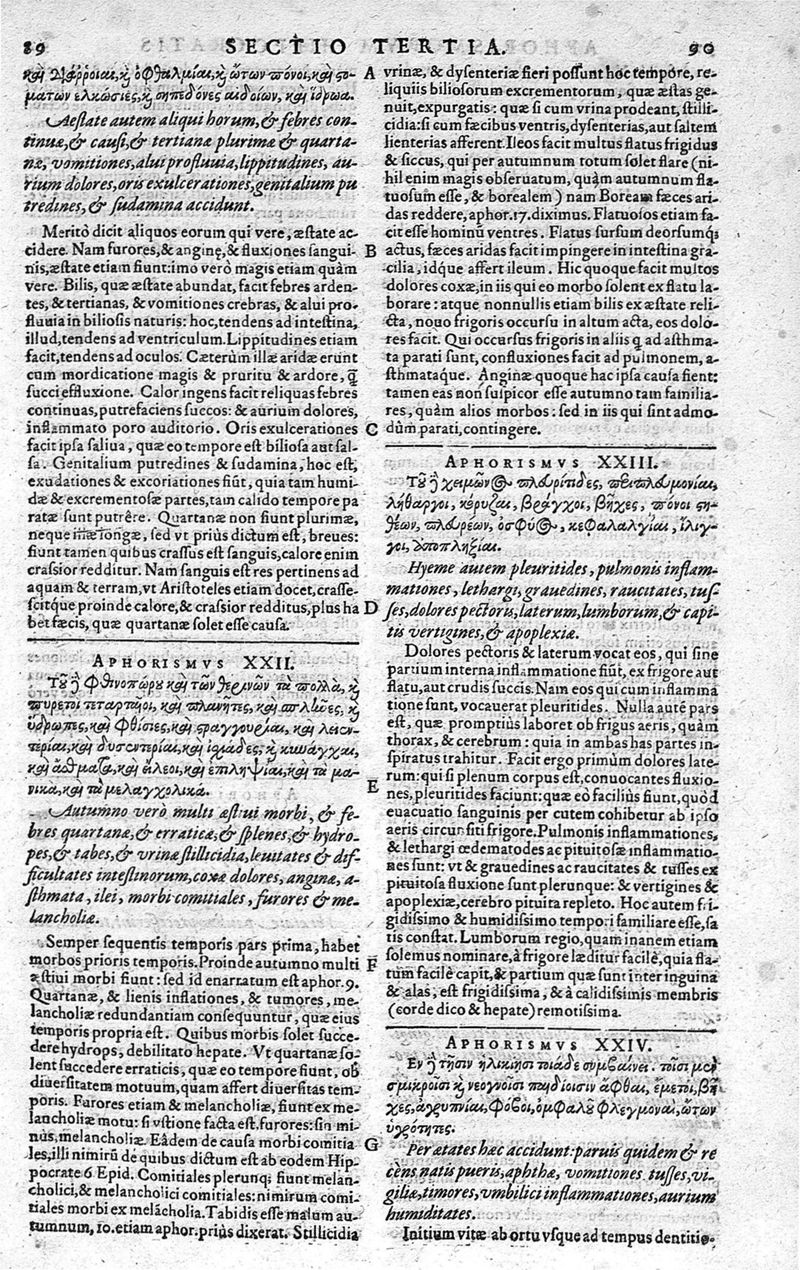 89 SECTIO TERTIA. 90
καὶ διάῤῥοιαι, κ̀ ὀφθαλμίαι, κ̀ ὤτων πόνοι, καὶ στο-
μάτων ἑλκώσιες, κ̀ σηπεδόνες αἰδοίων, καὶ ἵδρωα.
Aestate autem aliqui horum, & febres con-
tinuæ, & causi, & tertianæ plurimæ & quarta-
næ, vomitiones, alui profluuia, lippitudines, au-
rium dolores, oris exulcerationes, genitalium pu
tredines, & sudamina accidunt.
Meritò dicit aliquos eorum qui vere, æstate ac-
cidere. Nam furores, & anginę, & fluxiones sangui-
nis, æstate etiam fiunt: imo verò magis etiam quàm
vere. Bilis, quæ æstate abundat, facit febres arden-
tes, & tertianas, & vomitiones crebras, & alui pro-
fluuia in biliosis naturis: hoc, tendens ad intestina,
illud, tendens ad ventriculum. Lippitudines etiam
facit, tendens ad oculos. Cæterùm illæ aridæ erunt
cum mordicatione magis & pruritu & ardore, q̃
succi effluxione. Calor ingens facit reliquas febres
continuas, putrefaciens succos: & aurium dolores,
inflammato poro auditorio. Oris exulcerationes
facit ipsa saliua, quæ eo tempore est biliosa aut sal-
sa. Genitalium putredines & sudamina, hoc est,
exudationes & excoriationes fiũt, quia tam humi-
dæ & excrementosæ partes, tam calido tempore pa
ratæ sunt putrêre. Quartanæ non fiunt plurimæ,
neque itidem longæ, sed vt prius dictum est, breues:
fiunt tamen quibus crassus est sanguis, calore enim
crassior redditur. Nam sanguis est res pertinens ad
aquam & terram, vt Aristoteles etiam docet, crasse-
scitque proinde calore, & crassior redditus, plus ha
bet fæcis, quæ quartanæ solet esse causa.
APHORISMVS XXII.
Τοῦ δὲ φθινοπώρου καὶ τῶν θερινῶν τὰ πολλὰ, κ̀
πυρετοὶ τεταρταῖοι, καὶ πλανῆτες, καὶ σπλῆνες, κ̀
ὕδρωπες, καὶ φθίσιες, καὶ στραγγουρίαι, καὶ λειεν-
τερίαι, καὶ δυσεντερίαι, καὶ ἰσχιάδες, κ̀ κυνάγχαι,
καὶ ἄσθματα, καὶ εἰλεοὶ, καὶ ἐπιληψίαι, καὶ τὰ μα-
νικὰ, καὶ τὰ μελαγχολικά.
Autumno verò multi æstiui morbi, & fe-
bres quartanæ, & erraticæ, & splenes, & hydro-
pes, & tabes, & vrinæ stillicidia, leuitates & dif-
ficultates intestinorum, coxæ dolores, anginæ, a-
sthmata, ilei, morbi comitiales, furores & me-
lancholiæ.
Semper sequentis temporis pars prima, habet
morbos prioris temporis. Proinde autumno multi
æstiui morbi fiunt: sed id enarratum est aphor. 9.
Quartanæ, & lienis inflationes, & tumores, me-
lancholiæ redundantiam consequuntur, quæ eius
temporis propria est. Quibus morbis solet succe-
dere hydrops, debilitato hepate. Vt quartanæ so-
lent succedere erraticis, quæ eo tempore fiunt, ob
diuersitatem motuum, quam affert diuersitas tem-
poris. Furores etiam & melancholiæ, fiunt ex me-
lancholiæ motu: si vstione facta est, furores: sin mi-
nus, melancholiæ. Eâdem de causa morbi comitia
les, illi nimirũ de quibus dictum est ab eodem Hip-
pocrate 6 Epid. Comitiales plerunq; fiunt melan-
cholici, & melancholici comitiales: nimirum comi-
tiales morbi ex melãcholia. Tabidis esse malum au-
tumnum, 10. etiam aphor. prius dixerat. Stillicidia
A
B
C
D
E
F
G
vrinæ, & dysenteriæ fieri possunt hoc tempore, re-
liquiis biliosorum excrementorum, quæ æstas ge-
nuit, expurgatis: quæ si cum vrina prodeant, stilli-
cidia: si cum fæcibus ventris, dysenterias, aut saltem
lienterias afferent. Ileos facit multus flatus frigidus
& siccus, qui per autumnum totum solet flare (ni-
hil enim magis obseruatum, quàm autumnum fla-
tuosum esse, & borealem) nam Boream fæces ari-
das reddere, aphor. 17. diximus. Flatuosos etiam fa-
cit esse hominũ ventres. Flatus sursum deorsumq;
actus, fæces aridas facit impingere in intestina gra-
cilia, idque affert ileum. Hic quoque facit multos
dolores coxæ, in iis qui eo morbo solent ex flatu la-
borare: atque nonnullis etiam bilis ex æstate reli-
cta, nouo frigoris occursu in altum acta, eos dolo-
res facit. Qui occursus frigoris in aliis q̃ ad asthma-
ta parati sunt, confluxiones facit ad pulmonem, a-
sthmataque. Anginæ quoque hac ipsa causa fient:
tamen eas non suspicor esse autumno tam familia-
res, quàm alios morbos: sed in iis qui sint admo-
dùm parati, contingere.
APHORISMVS XXIII.
Τοῦ δὲ χειμῶνος πλευρίτιδες, περιπλευμονίαι,
λήθαργοι, κόρυζαι, βράγχοι, βῆχες, πόνοι στη-
θέων, πλευρέων, ὀσφύος, κεφαλαλγίαι, ἴλιγ-
γοι, ἀποπληξίαι.
Hyeme autem pleuritides, pulmonis inflam-
mationes, lethargi, grauedines, raucitates, tus-
ses, dolores pectoris, laterum, lumborum, & capi-
tis vertigines, & apoplexiæ.
Dolores pectoris & laterum vocat eos, qui sine
partium interna inflammatione fiũt, ex frigore aut
flatu, aut crudis succis. Nam eos qui cum inflamma
tione sunt, vocauerat pleuritides. Nulla autẽ pars
est, quæ promptiùs laboret ob frigus aeris, quàm
thorax, & cerebrum: quia in ambas has partes in-
spiratus trahitur. Facit ergo primùm dolores late-
rum: qui si plenum corpus est, conuocantes fluxio-
nes, pleuritides faciunt: quæ eò faciliùs fiunt, quòd
euacuatio sanguinis per cutem cohibetur ab ipso
aeris circunsiti frigore. Pulmonis inflammationes,
& lethargi œdematodes ac pituitosæ inflammatio-
nes sunt: vt & grauedines ac raucitates & tusses ex
pituitosa fluxione sunt plerunque: & vertigines &
apoplexiæ, cerebro pituita repleto. Hoc autem fri-
gidissimo & humidissimo tempori familiare esse, sa
tis constat. Lumborum regio, quam inanem etiam
solemus nominare, à frigore læditur facilè, quia fla-
tum facilè capit, & partium quæ sunt inter inguina
& alas, est frigidissima, & à calidissimis membris
(corde dico & hepate) remotissima.
APHORISMVS XXIV.
Ἐν δὲ τῇσιν ἡλικίῃσι τοιάδε συμβαίνει. τοῖσι μὲν
σμικροῖσι κ̀ νεογνοῖσι παιδίοισιν ἄφθαι, ἔμετοι, βῆ-
χες, ἀγρυπνίαι, φόβοι, ὀμφαλοῦ φλεγμοναὶ, ὤτων
ὑγρότητες.
Per ætates hæc accidunt: paruis quidem & re
cèns natis pueris, aphthæ, vomitiones tusses, vi-
giliæ, timores, vmbilici inflammationes, aurium
humiditates.
Initium vitæ ab ortu vsque ad tempus dentitio-